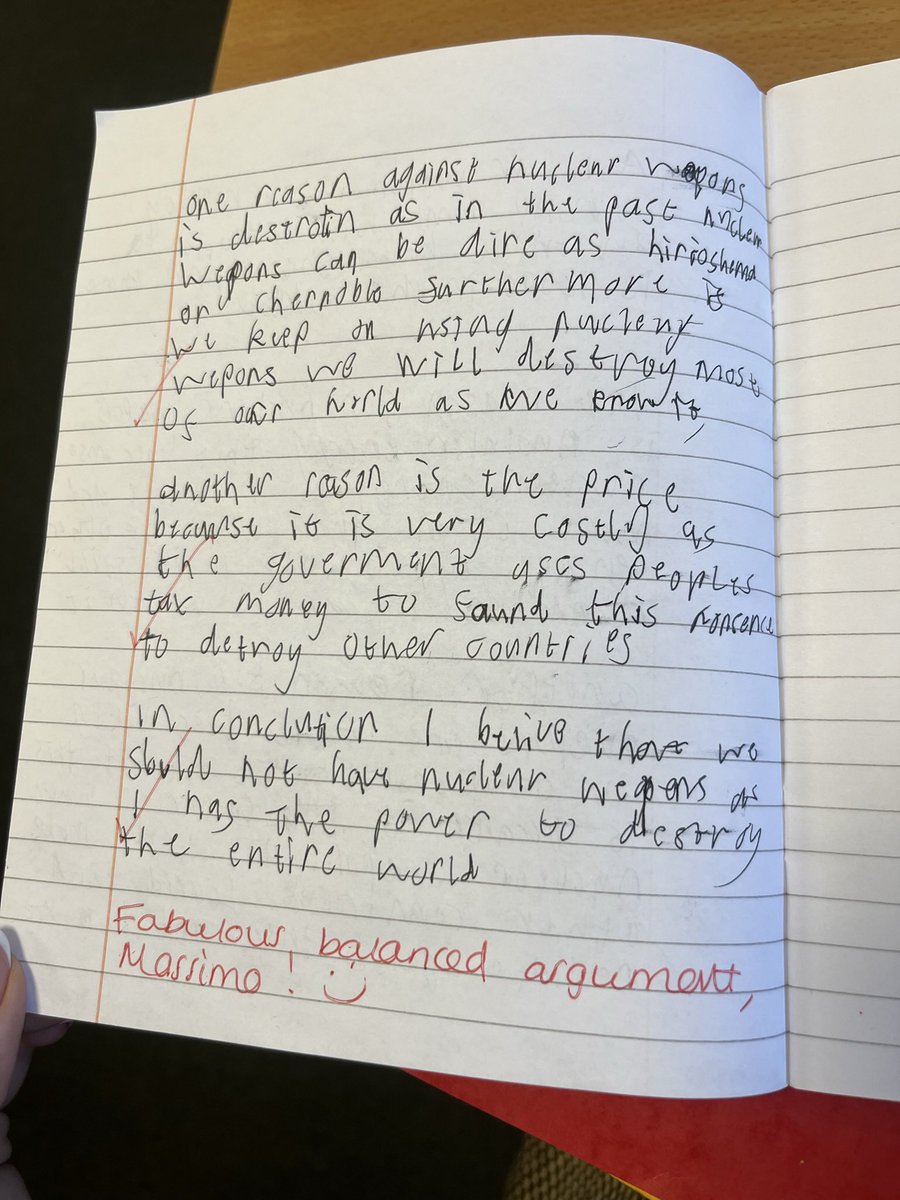 one reason against nuclear wepons
is destrotin as in the past nuclear
wepons can be dire as hirioshema
and chernoblo furthermore if
we keep on using nuclear
wepons we will destroy most
of our world as we know it,
another reason is the price
because it is very costly as
the goverment uses peoples
tax money to found this nonsence
to detroy other countries
in conclution I belive that we
should not have nuclear wepons as
I has the power to destroy
the entire world
Fabulous, balanced argument,
Massimo! :)